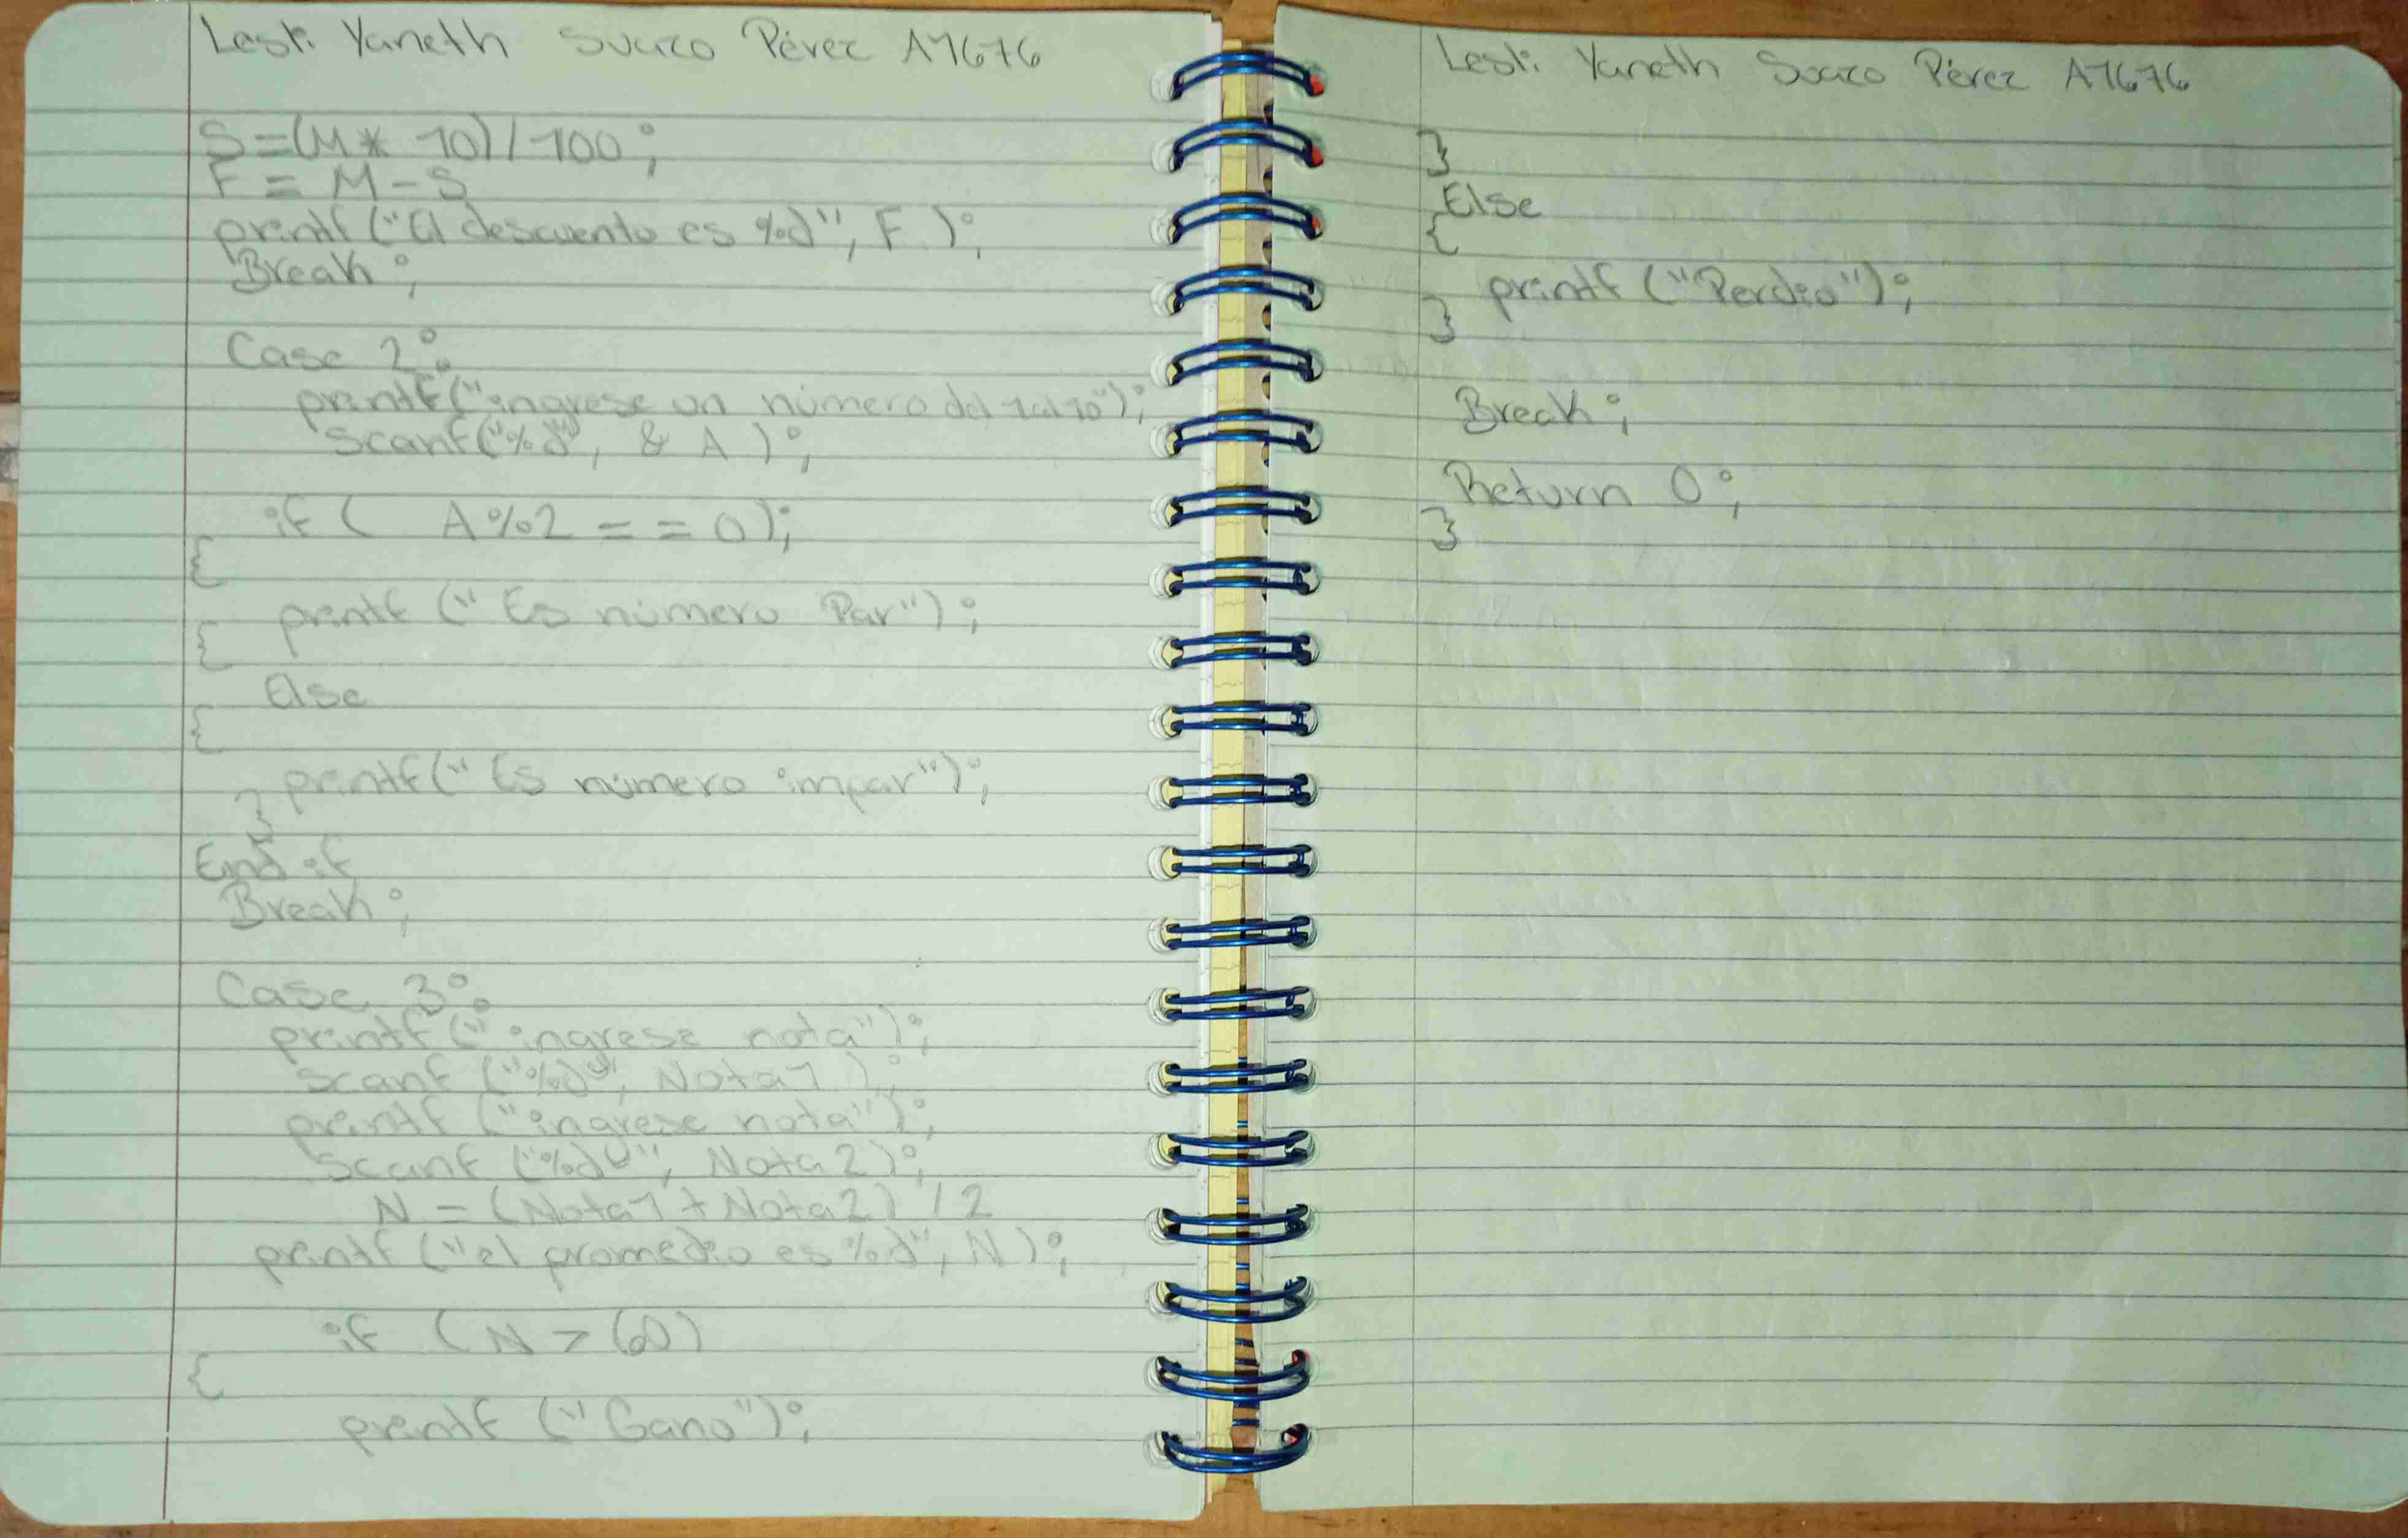 Lesli Yaneth Suazo Pérez A1676
S=(M* 10)/100;
F = M-S
printf("El descuento es %d", F );
Break;
Case 2:
printf("ingrese un número del 1 al 10");
Scanf("%d", & A );
if ( A%2 = = 0);
{
printf (" Es número Par");
{
Else
{
printf(" Es número impar");
}
End if
Break;
Case 3:
printf("ingrese nota");
Scanf ("%d", Nota1 );
printf ("ingrese nota");
Scanf ("%d", Nota2);
N = (Nota1 + Nota2) / 2
printf ("el promedio es %d", N );
if ( N > 60)
{
printf ("Gano");
Lesli Yaneth Suazo Pérez A1676
}
Else
{
printf ("Perdio");
}
Break;
Return 0;
}